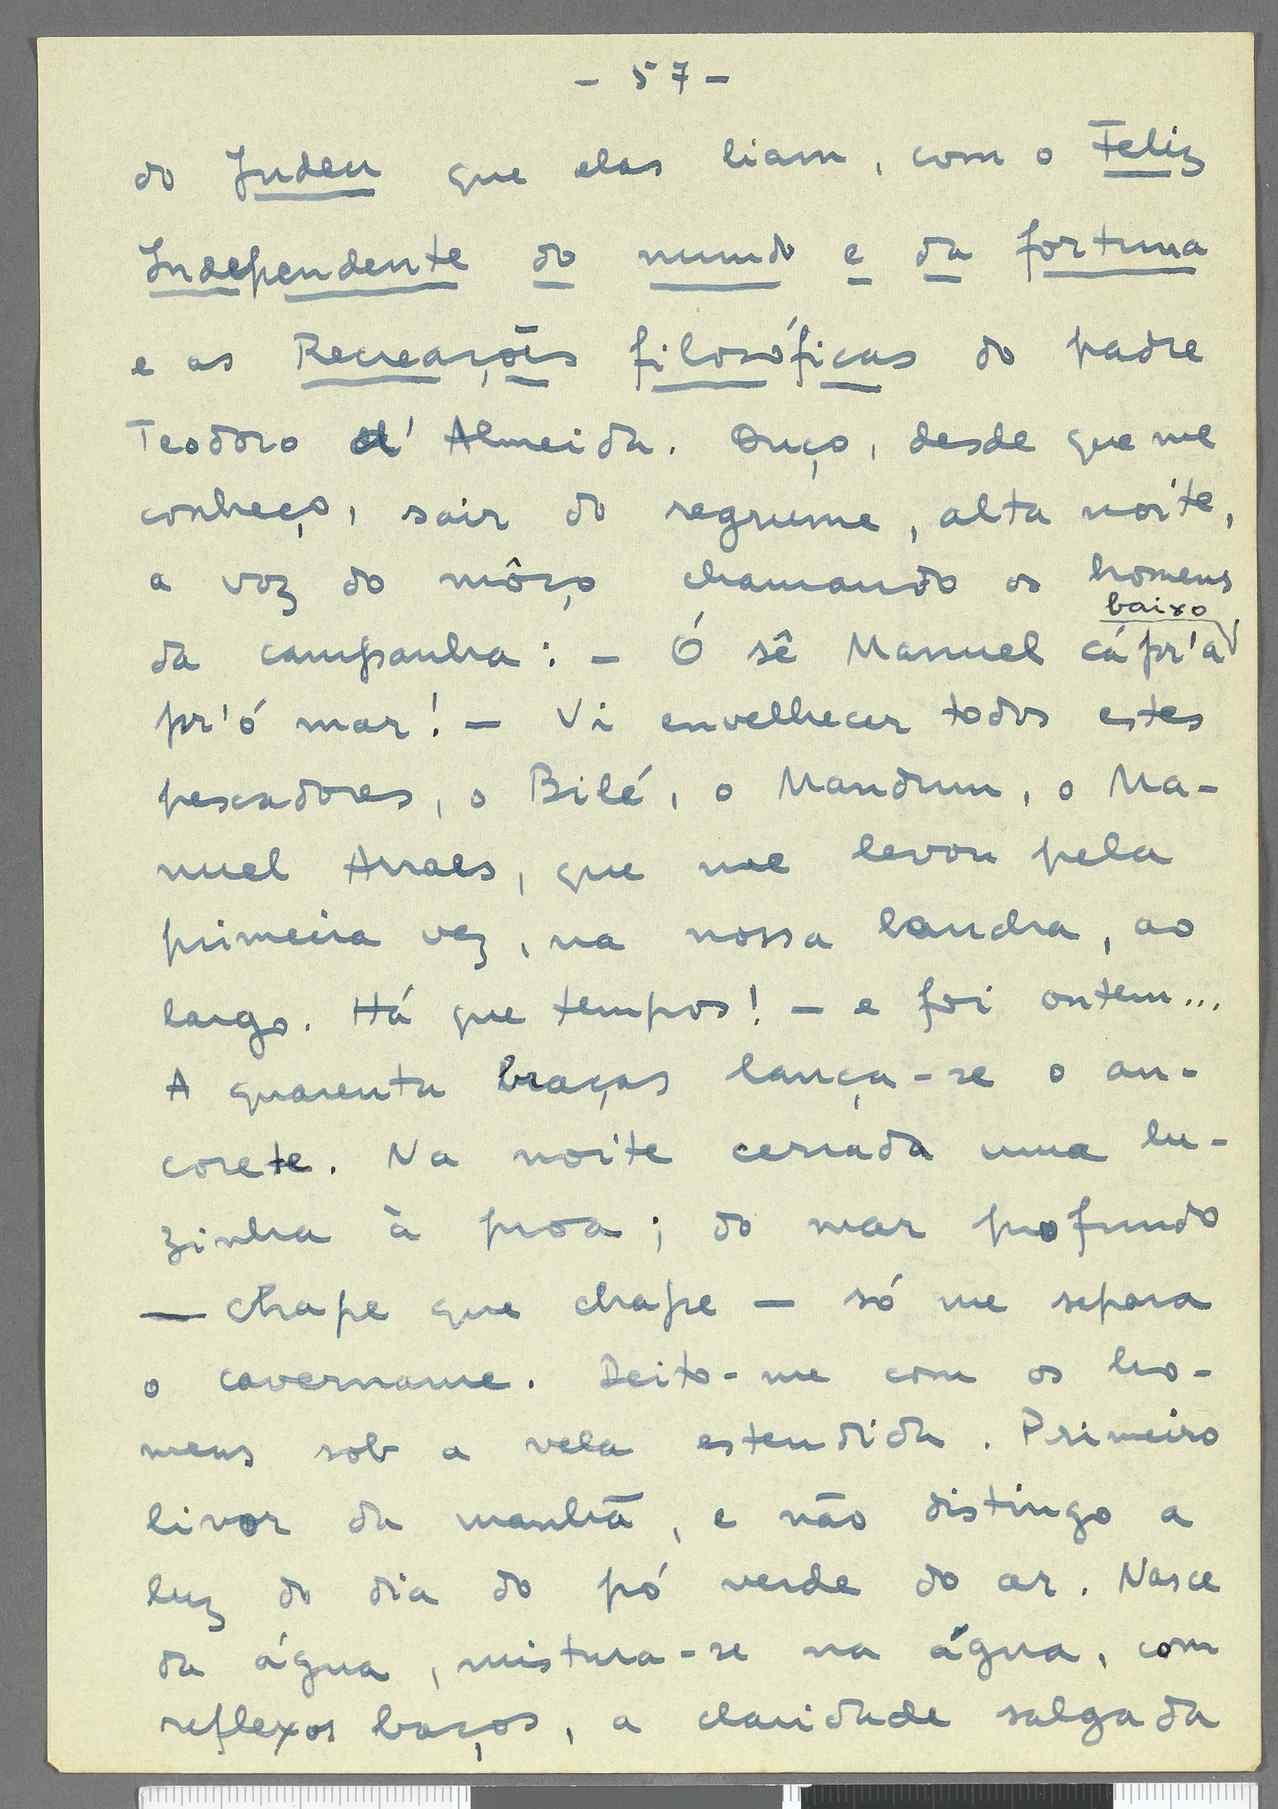 - 57 -
do Judeu que elas liam, com o Feliz
Independente do mundo e da fortuna
e as Recreações filosóficas do padre
Teodoro d' Almeida. Ouço, desde que me
conheço, sair do negrume, alta noite,
a voz do môço chamando os homens
baixo
da campanha: - Ó sê Manuel cá pr'a
pr'ó mar! - Vi envelhecer todos estes
pescadores, o Bilé, o Mandum, o Ma-
nuel Arraes, que me levou pela
primeira vez, na nossa lancha, ao
largo. Há que tempos! - e foi ontem...
A quarenta braças lança-se o an-
corete. Na noite cerrada uma lu-
zinha à proa; do mar profundo
— chape que chape — só me separa
o cavername. Deito-me com os ho-
mens sob a vela estendida. Primeiro
livor da manhã, e não distingo a
luz do dia do pó verde do ar. Nasce
da água, mistura-se na água, com
reflexos baços, a claridade salgada